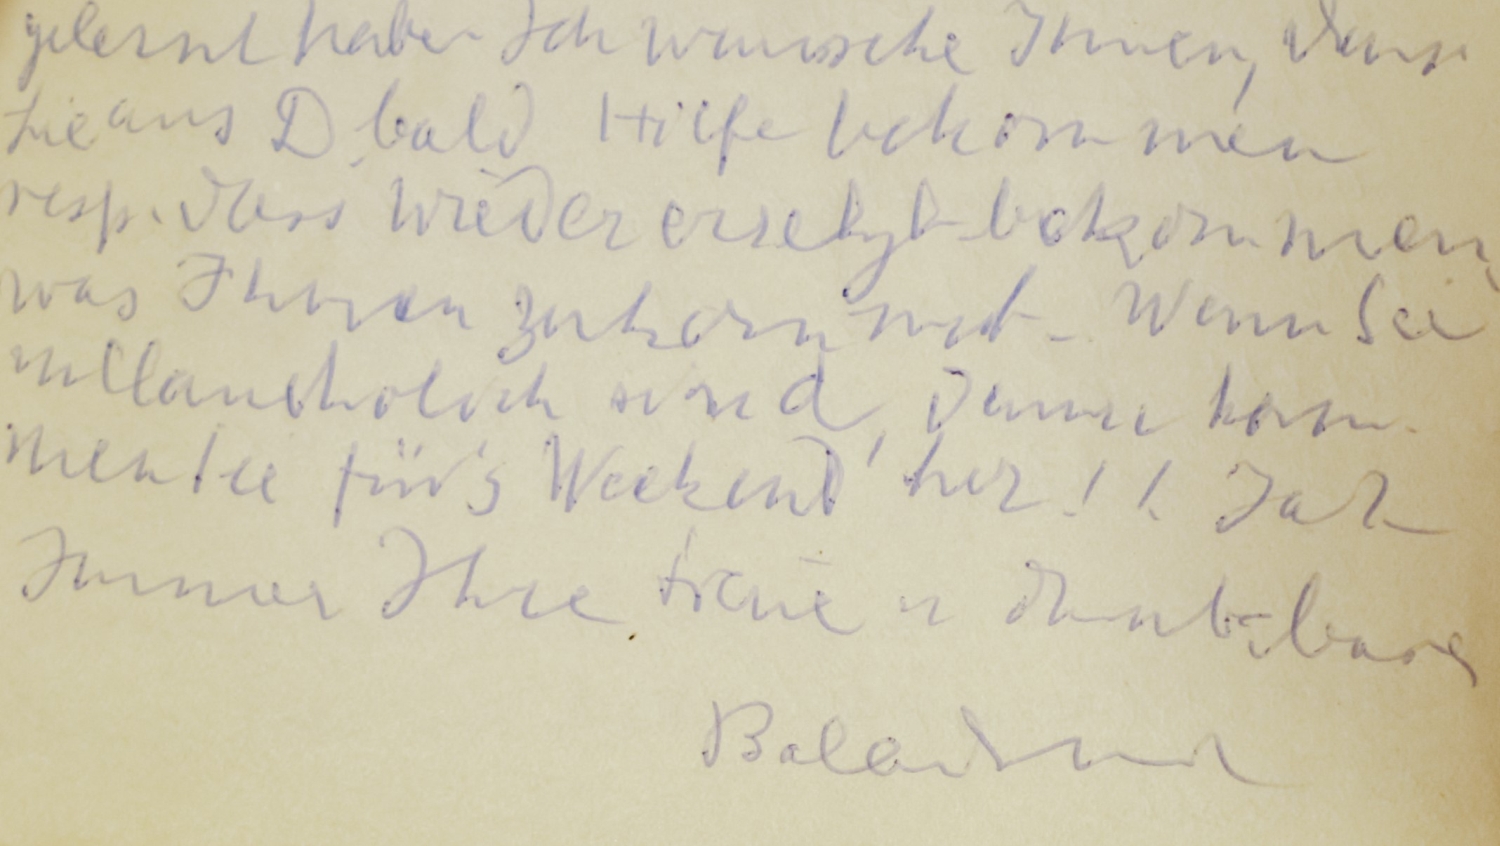 gelernt haben Ich wünsche Ihnen, dass
Sie aus D. bald Hilfe bekommen
resp. dass wieder ersetzt bekommen,
was Ihnen zukommt. Wenn Sie
mellancholich sind, dann kom-
men Sie für's Weekend her!! Ja
Immer Ihre treue u dankbare